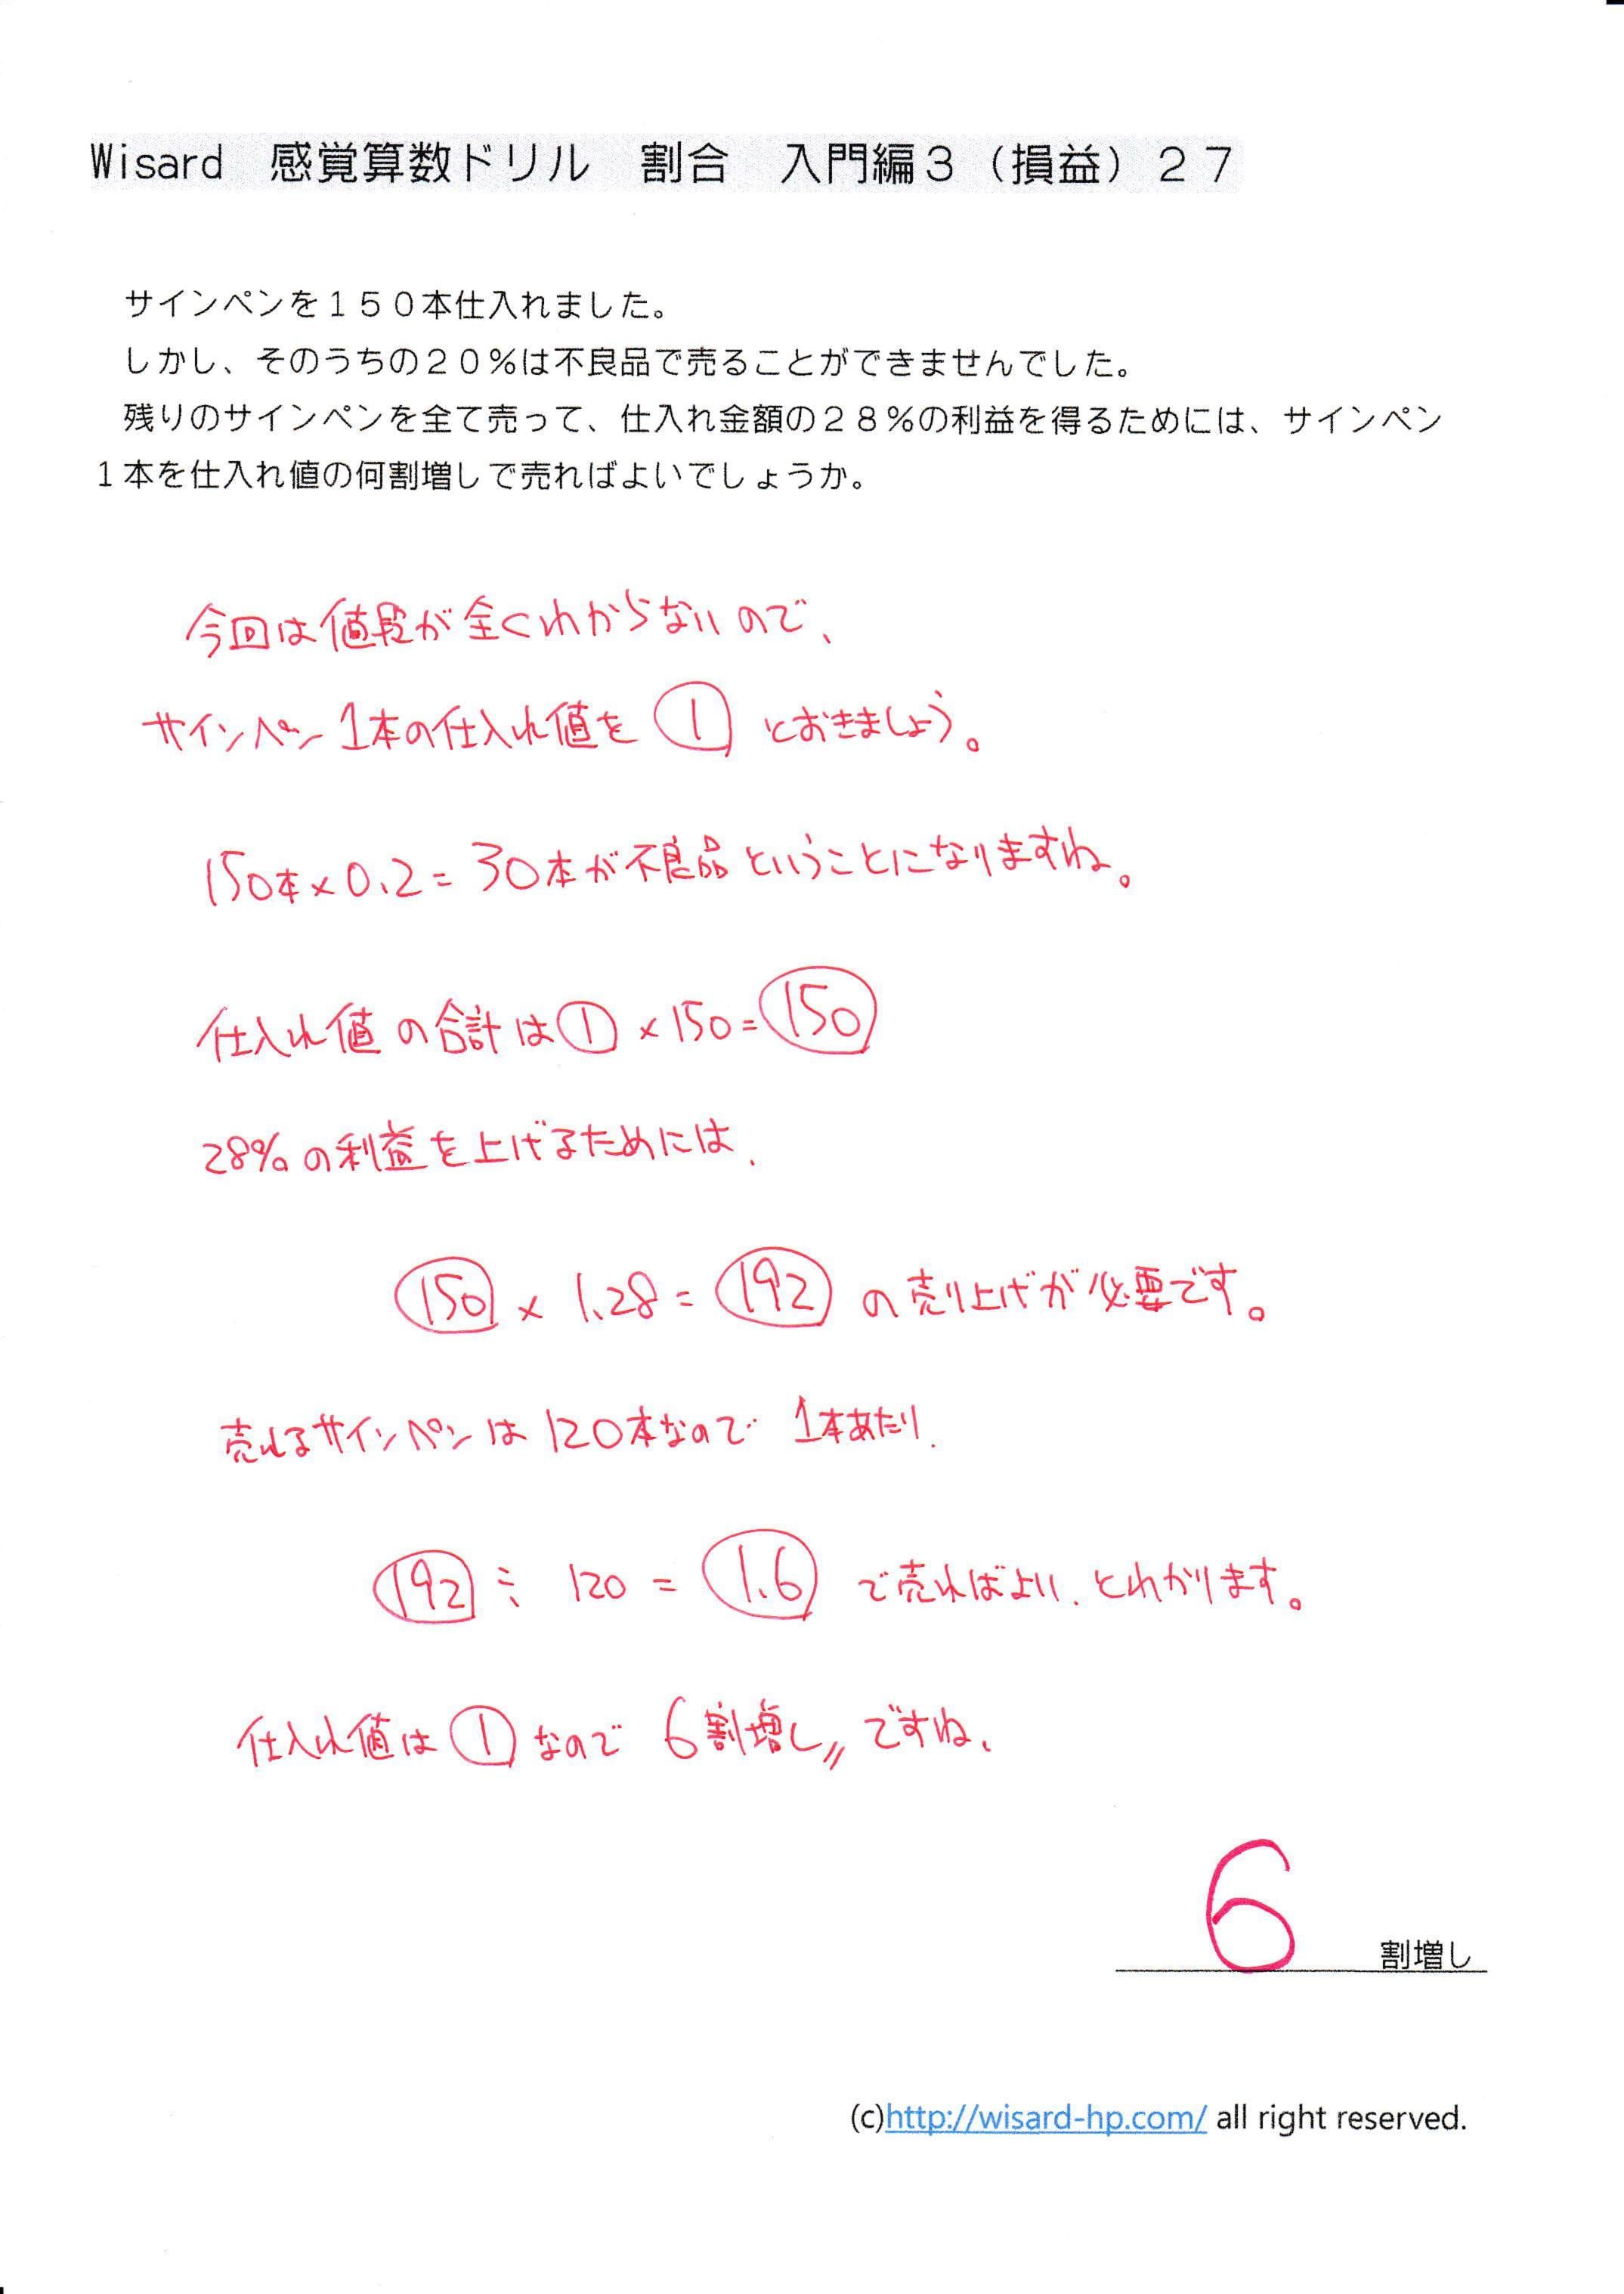 Wisard　感覚算数ドリル　割合　入門編３（損益）２７
サインペンを１５０本仕入れました。
しかし、そのうちの２０％は不良品で売ることができませんでした。
残りのサインペンを全て売って、仕入れ金額の２８％の利益を得るためには、サインペン
１本を仕入れ値の何割増しで売ればよいでしょうか。
今回は値段が全くわからないので、
サインペン1本の仕入れ値を ① とおきましょう。
150本×0.2＝30本が不良品ということになりますね。
仕入れ値の合計は①×150＝⑮⓪
28%の利益を上げるためには、
150 × 1.28 = 192 の売り上げが必要です。
売れるサインペンは120本なので 1本あたり、
192 ÷ 120 = 1.6 で売ればよい、とわかります。
仕入れ値は ① なので 6割増し〃ですね、
6 割増し
(c)http://wisard-hp.com/ all right reserved.